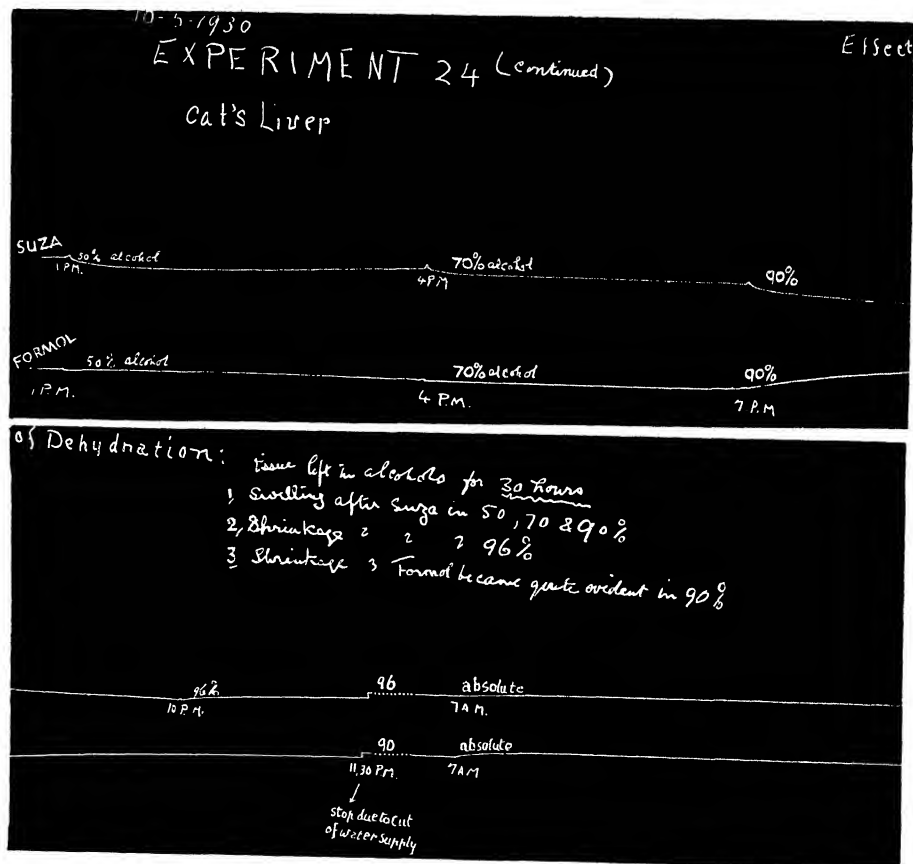 10-5-1930
EXPERIMENT 24 (continued)
Effect
Cat's Liver
SUZA
50% alcohol
70% alcohol
90%
1 P.M.
4 P.M
FORMOL
50% alcohol
70% alcohol
90%
1 P.M.
4 P.M.
7 P.M
of Dehydration:
tissue left in alcohols for 30 hours
1, Swelling after Suza in 50, 70 & 90%
2, Shrinkage " " " 96%
3 Shrinkage " Formol became quite evident in 90%
96%
96
absolute
10 P.M.
7 A.M.
90
absolute
11,30 P.M.
7 AM
stop due to cut
of water supply